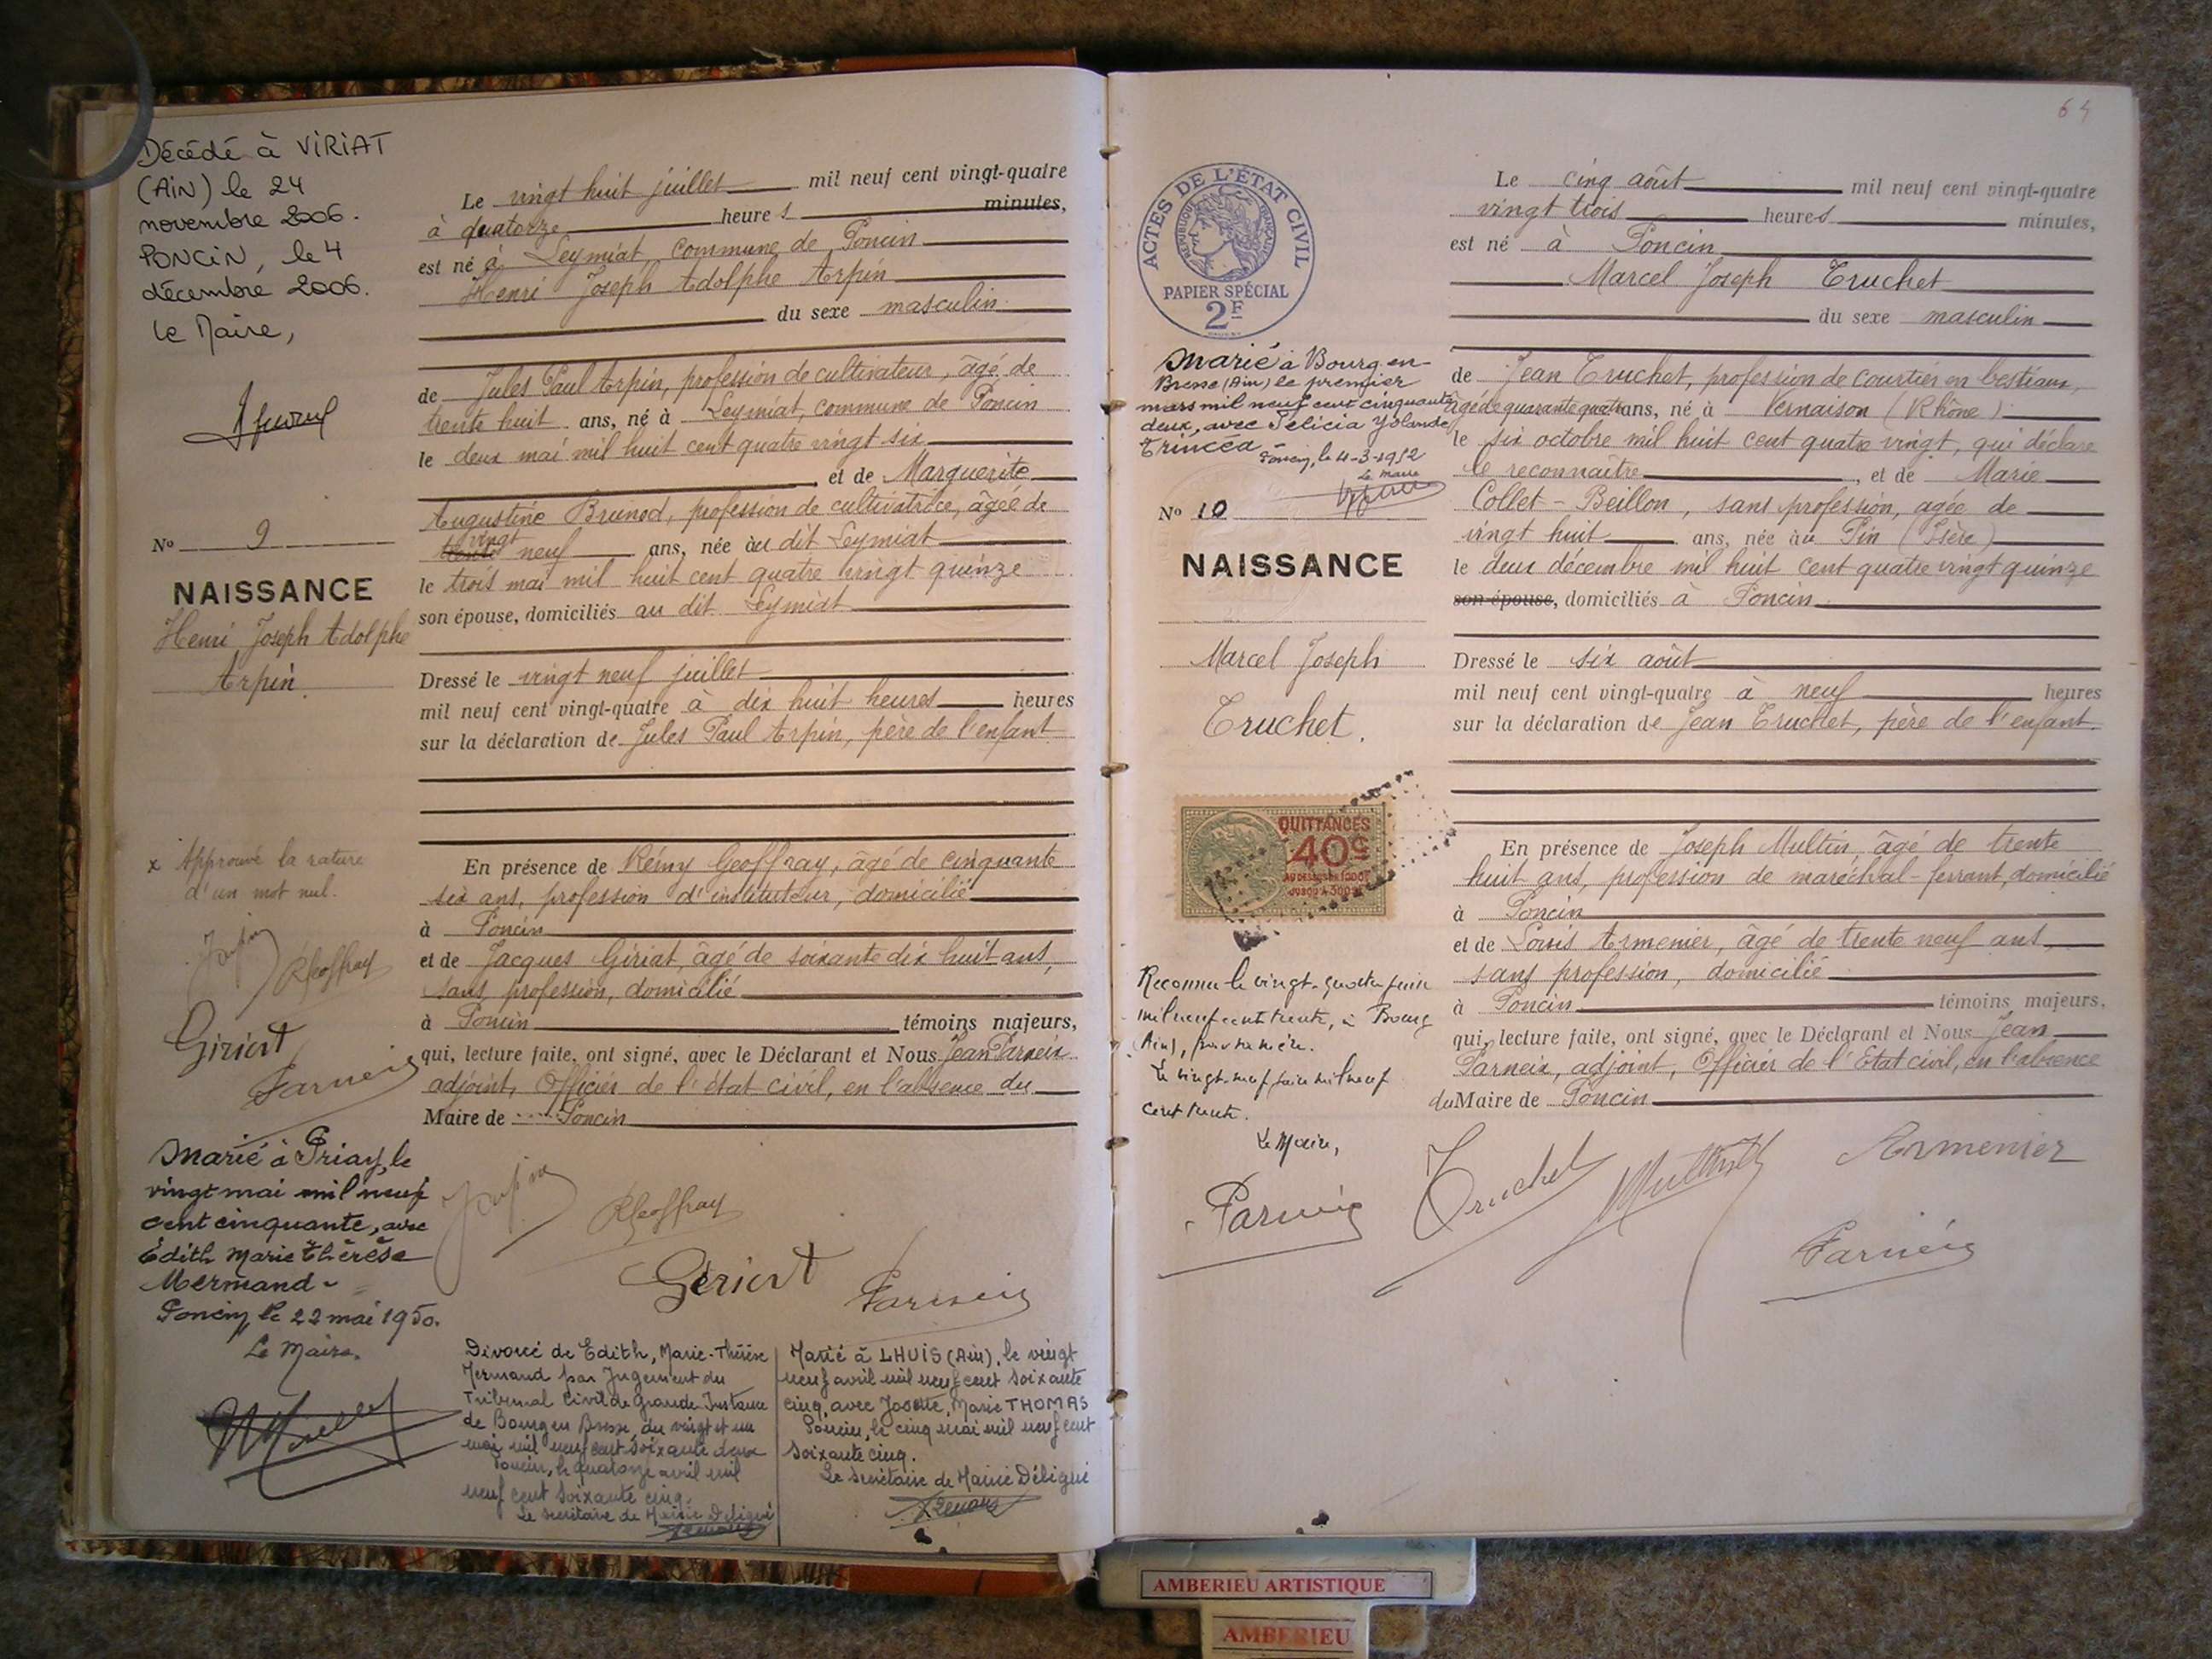 Décédé à VIRIAT
(AIN) le 24
novembre 2006.
PONCIN, le 4
décembre 2006.
Le Maire,
No 9
NAISSANCE
Henri Joseph Adolphe
Arpin
x Approuvé la rature
d'un mot nul.
RGeoffray
Giriat
Parneix
Marié à Priay, le
vingt mai mil neuf
cent cinquante, avec
Edith Marie Thérèse
Mermand -
Poncin, le 22 mai 1950.
Le Maire.
Le vingt huit juillet mil neuf cent vingt-quatre
à quatorze heures minutes,
est né à Leymiat, commune de Poncin
Henri Joseph Adolphe Arpin
du sexe masculin
de Jules Paul Arpin, profession de cultivateur, âgé de
trente huit ans, né à Leymiat, commune de Poncin
le deux mai mil huit cent quatre vingt six
et de Marguerite
Augustine Brunod, profession de cultivatrice, âgée de
vingt
trente neuf ans, née au dit Leymiat
le trois mai mil huit cent quatre vingt quinze
son épouse, domiciliés au dit Leymiat
Dressé le vingt neuf juillet
mil neuf cent vingt-quatre à dix huit heures heures
sur la déclaration de Jules Paul Arpin, père de l'enfant
En présence de Rémy Geoffray, âgé de cinquante
six ans, profession d'instituteur, domicilié
à Poncin
et de Jacques Giriat, âgé de soixante dix huit ans,
sans profession, domicilié
à Poncin témoins majeurs,
qui, lecture faite, ont signé, avec le Déclarant et Nous Jean Parneix
adjoint, Officier de l'état civil, en l'absence du
Maire de Poncin
RGeoffray
Giriat
Parneix
Divorcé de Edith, Marie-Thérèse
Mermand par Jugement du
Tribunal Civil de Grande Instance
de Bourg en Bresse, du vingt et un
mai mil neuf cent soixante deux
Poncin, le quatorze avril mil
neuf cent soixante cinq.
Le secrétaire de Mairie Délégué
Marié à LHUIS (Ain), le vingt
neuf avril mil neuf cent soixante
cinq, avec Josette, Marie THOMAS
Poncin, le cinq mai mil neuf cent
soixante cinq.
Le secrétaire de Mairie Délégué
64
ACTES DE L'ÉTAT CIVIL
RÉPUBLIQUE FRANÇAISE
PAPIER SPÉCIAL
2F
Marié à Bourg en
Bresse (Ain) le premier
mars mil neuf cent cinquante
deux, avec Félicia Yolande
Trincéa -
Poncin, le 4-3-1952
Le Maire
No 10
NAISSANCE
Marcel Joseph
Truchet.
QUITTANCES
40c
Reconnu le vingt-quatre juin
mil neuf cent trente, à Bourg
(Ain), par sa mère.
Le vingt-neuf juin mil neuf
cent trente.
Le Maire,
Parneix
Le cinq août mil neuf cent vingt-quatre
vingt trois heures minutes,
est né à Poncin
Marcel Joseph Truchet
du sexe masculin
de Jean Truchet, profession de courtier en bestiaux,
âgé de quarante quatre ans, né à Vernaison (Rhône)
le six octobre mil huit cent quatre vingt, qui déclare
le reconnaître, et de Marie
Collet-Beillon, sans profession, agée de
vingt huit ans, née au Pin (Isère)
le deux décembre mil huit cent quatre vingt quinze
son épouse, domiciliés à Poncin
Dressé le six août
mil neuf cent vingt-quatre à neuf heures
sur la déclaration de Jean Truchet, père de l'enfant.
En présence de Joseph Multin, âgé de trente
huit ans, profession de maréchal-ferrant, domicilié
à Poncin
et de Louis Armenier, âgé de trente neuf ans,
sans profession, domicilié
à Poncin témoins majeurs,
qui, lecture faite, ont signé, avec le Déclarant et Nous Jean
Parneix, adjoint, Officier de l'Etat civil, en l'absence
du Maire de Poncin
Truchet
Armenier
Parneix
AMBERIEU ARTISTIQUE
AMBERIEU